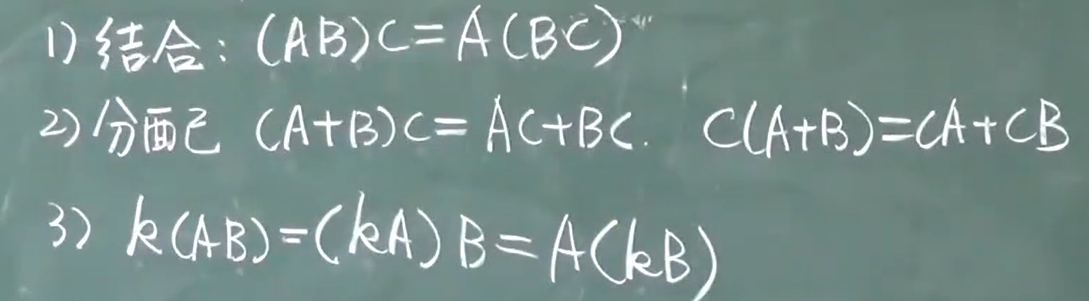 1) 结合: (AB)C=A(BC)
2) 分配 (A+B)C=AC+BC. C(A+B)=CA+CB
3) k(AB)=(kA)B=A(kB)